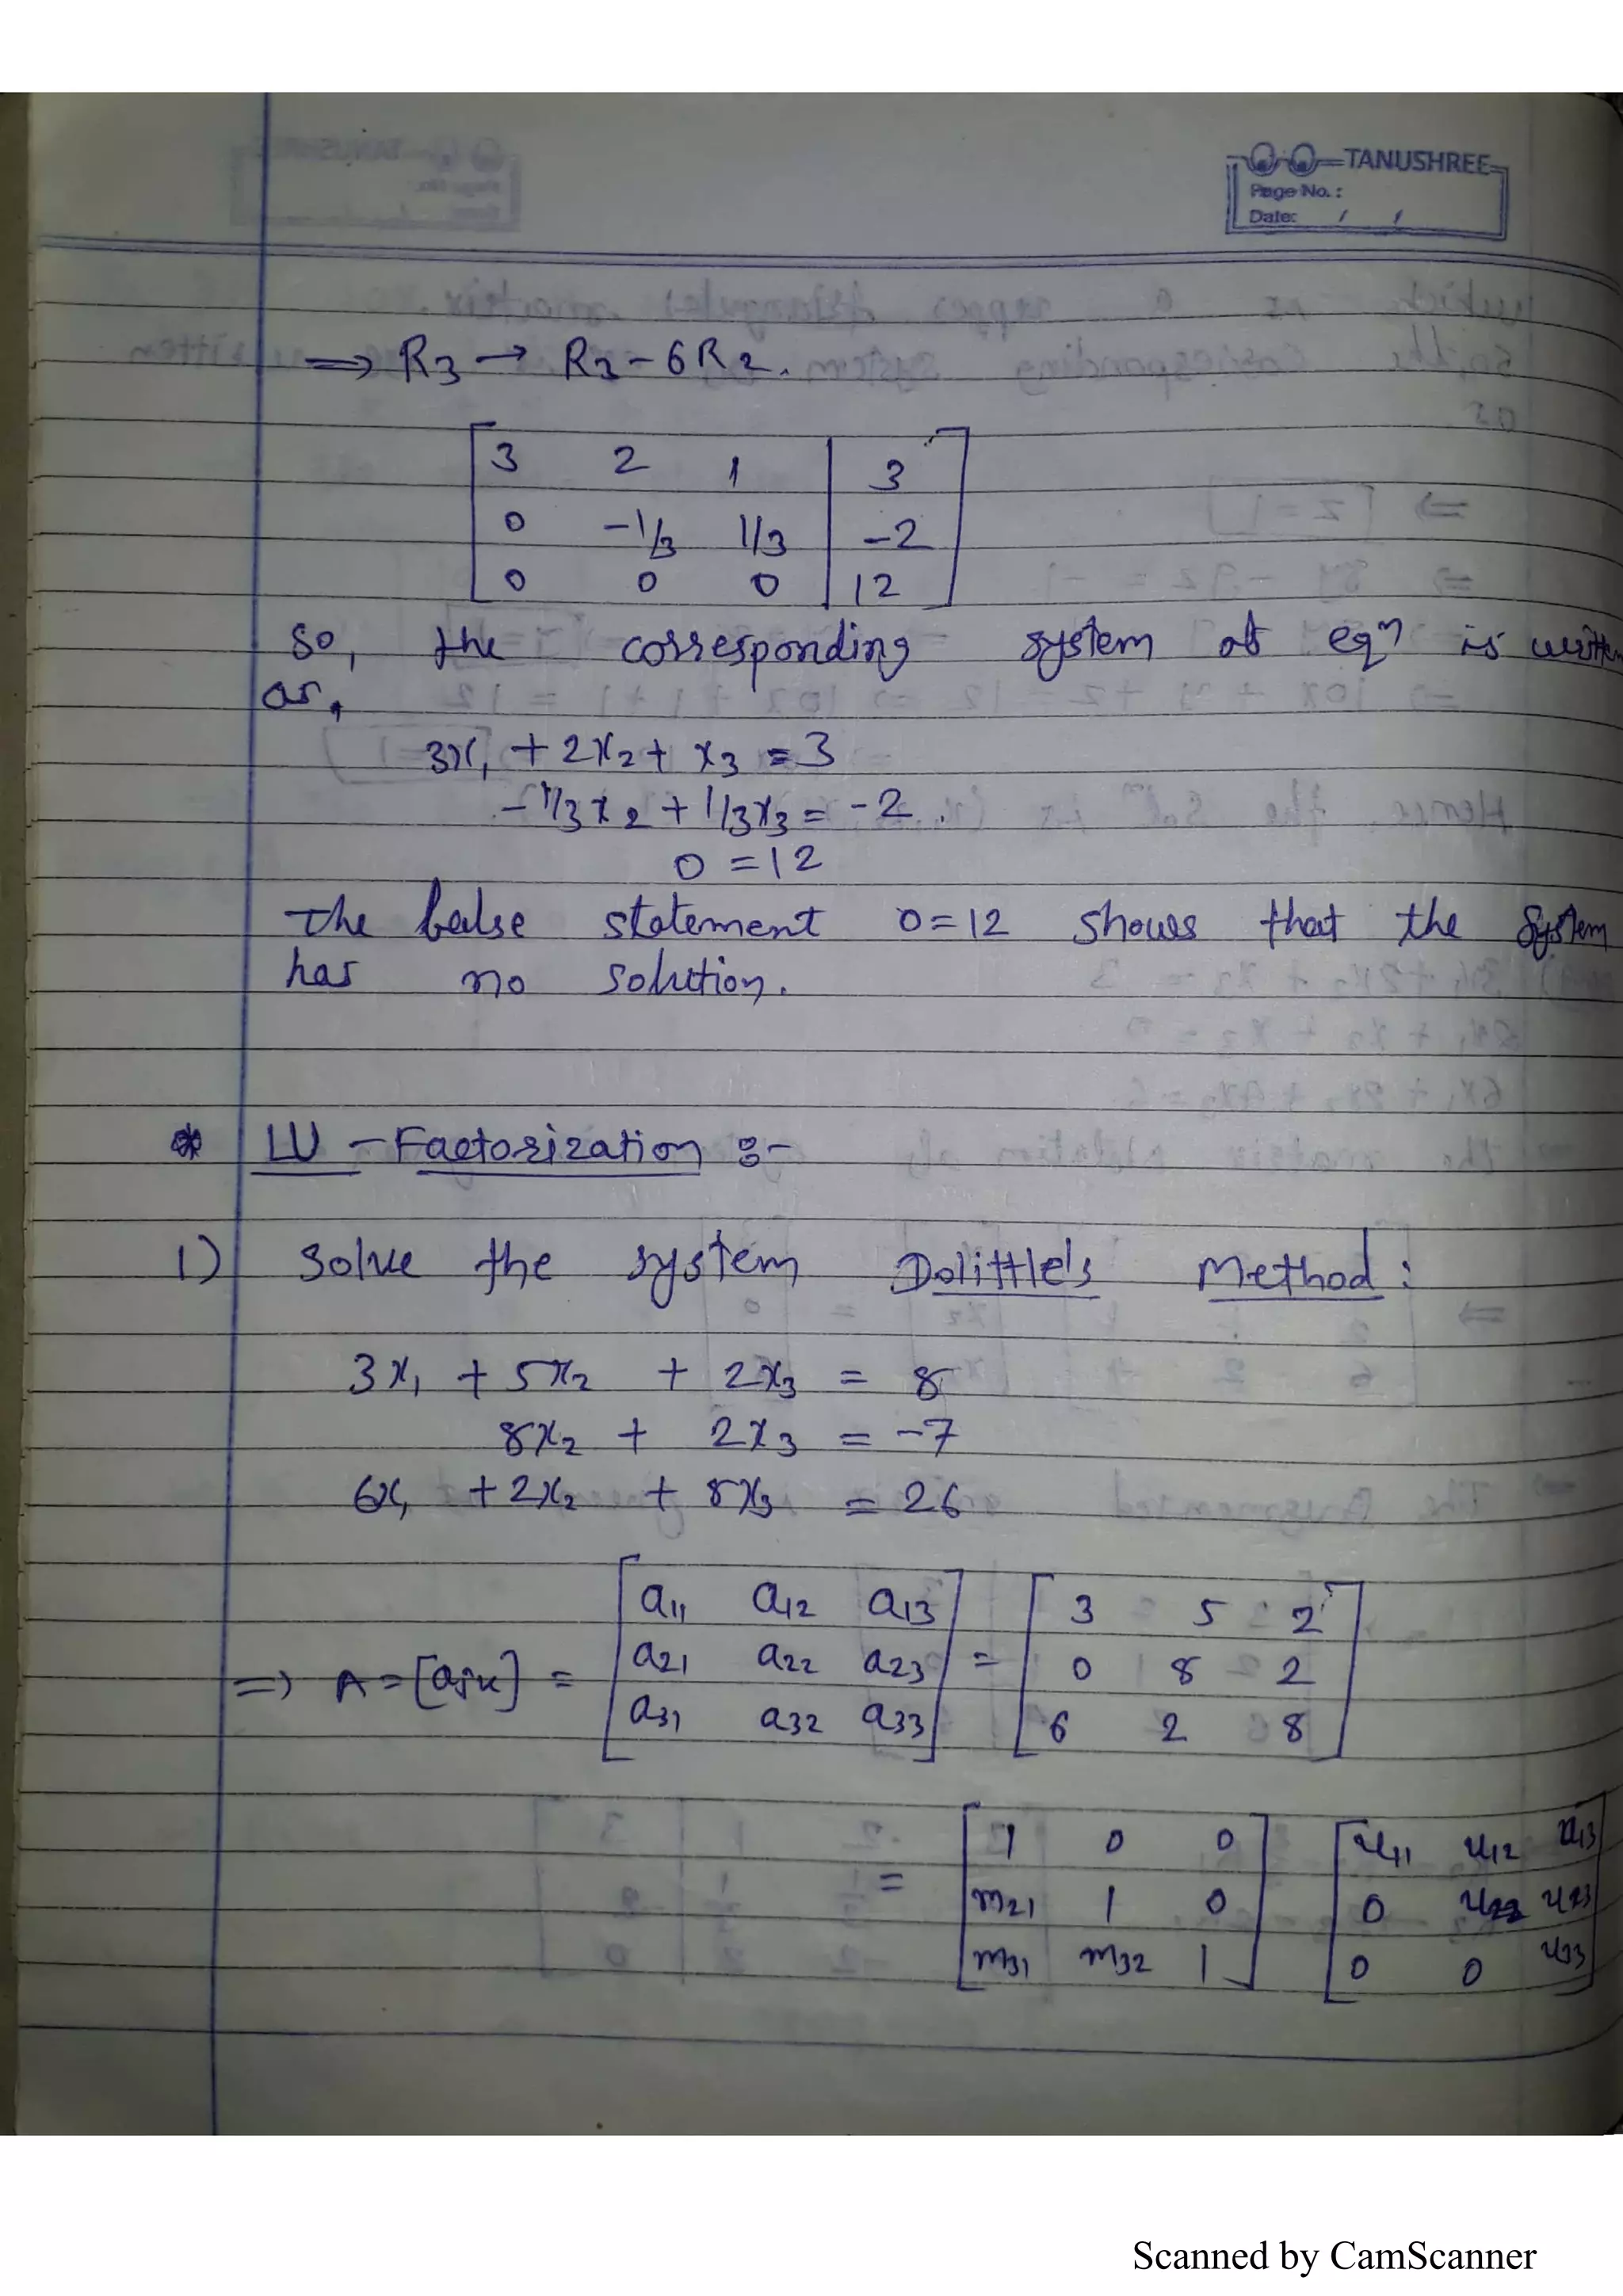 TANUSHREE
Page No. :
Date: / /
⇒ R3 → R3 - 6R2.
[ 3 2 1 | 3 ]
[ 0 -1/3 1/3 | -2 ]
[ 0 0 0 | 12 ]
So, the corresponding system of eqn is written
as,
3x1 + 2x2 + x3 = 3
-1/3x2 + 1/3x3 = -2.
0 = 12
The false statement 0=12 shows that the system
has no solution.
* LU - Factorization :-
1) Solve the system Dolittle's Method :
3x1 + 5x2 + 2x3 = 8
8x2 + 2x3 = -7
6x1 + 2x2 + 8x3 = 26
⇒ A = [ajk] = [ a11 a12 a13 ] = [ 3 5 2 ]
[ a21 a22 a23 ] [ 0 8 2 ]
[ a31 a32 a33 ] [ 6 2 8 ]
= [ 1 0 0 ] [ u11 u12 u13 ]
[ m21 1 0 ] [ 0 u22 u23 ]
[ m31 m32 1 ] [ 0 0 u33 ]
Scanned by CamScanner